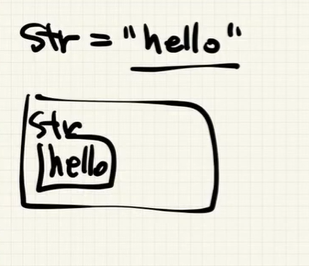 str = "hello"
str
hello